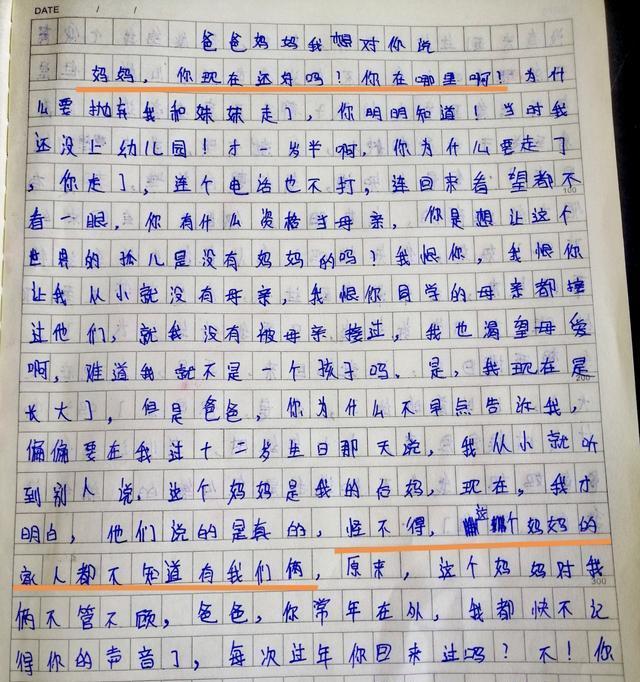 DATE / /
爸爸妈妈我想对你说
妈妈，你现在还好吗！你在哪里啊！为什
么要抛弃我和妹妹走了，你明明知道！当时我
还没上幼儿园！才一岁半啊，你为什么要走了
，你走了，连个电话也不打，连回来看望都不
100
看一眼，你有什么资格当母亲，你是想让这个
世界的孤儿是没有妈妈的吗？我恨你，我恨你
让我从小就没有母亲，我恨你同学的母亲都接
过他们，就我没有被母亲接过，我也渴望母爱
啊，难道我就不是一个孩子吗、是，我现在是
200
长大了，但是爸爸，你为什么不早点告诉我，
偏偏要在我过十二岁生日那天说，我从小就听
到别人说，这个妈妈是我的后妈，现在，我才
明白，他们说的是真的，怪不得，这个妈妈的
家人都不知道有我们俩，原来，这个妈妈对我
300
俩不管不顾，爸爸，你常年在外，我都快不记
得你的声音了，每次过年你回来过吗？不！你